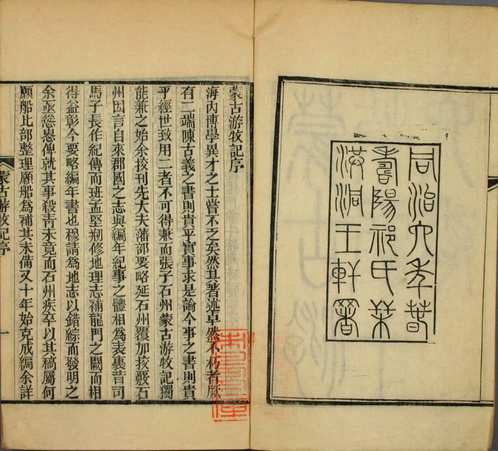 同治六年萅
壽陽祁氏栞
洪洞王軒署
蒙古游牧記序
海內博學異才之士嘗不乏矣然其著述卓然不朽者厥
有二端陳古義之書則貴乎實事求是論今事之書則貴
乎經世致用二者不可得兼而張子石州蒙古游牧記獨
能兼之始余挍刊先大夫藩部要略延石州覆加挍覈石
州因言自來郡國之志與編年紀事之體相爲表裏昔司
馬子長作紀傳而班孟堅剏修地理志補龍門之闕而相
得益彰今要略編年書也穆請爲地志以錯綜而發明之
余亟慫惥俾就其事殺青未竟而石州疾卒以其稿屬何
願船比部整理願船爲補其未備又十年始克成編余詳
蒙古游牧記序 一